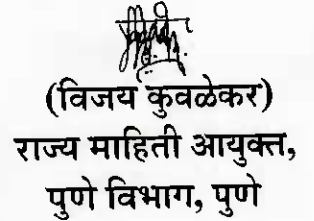 (विजय कुवळेकर)
राज्य माहिती आयुक्त,
पुणे विभाग, पुणे